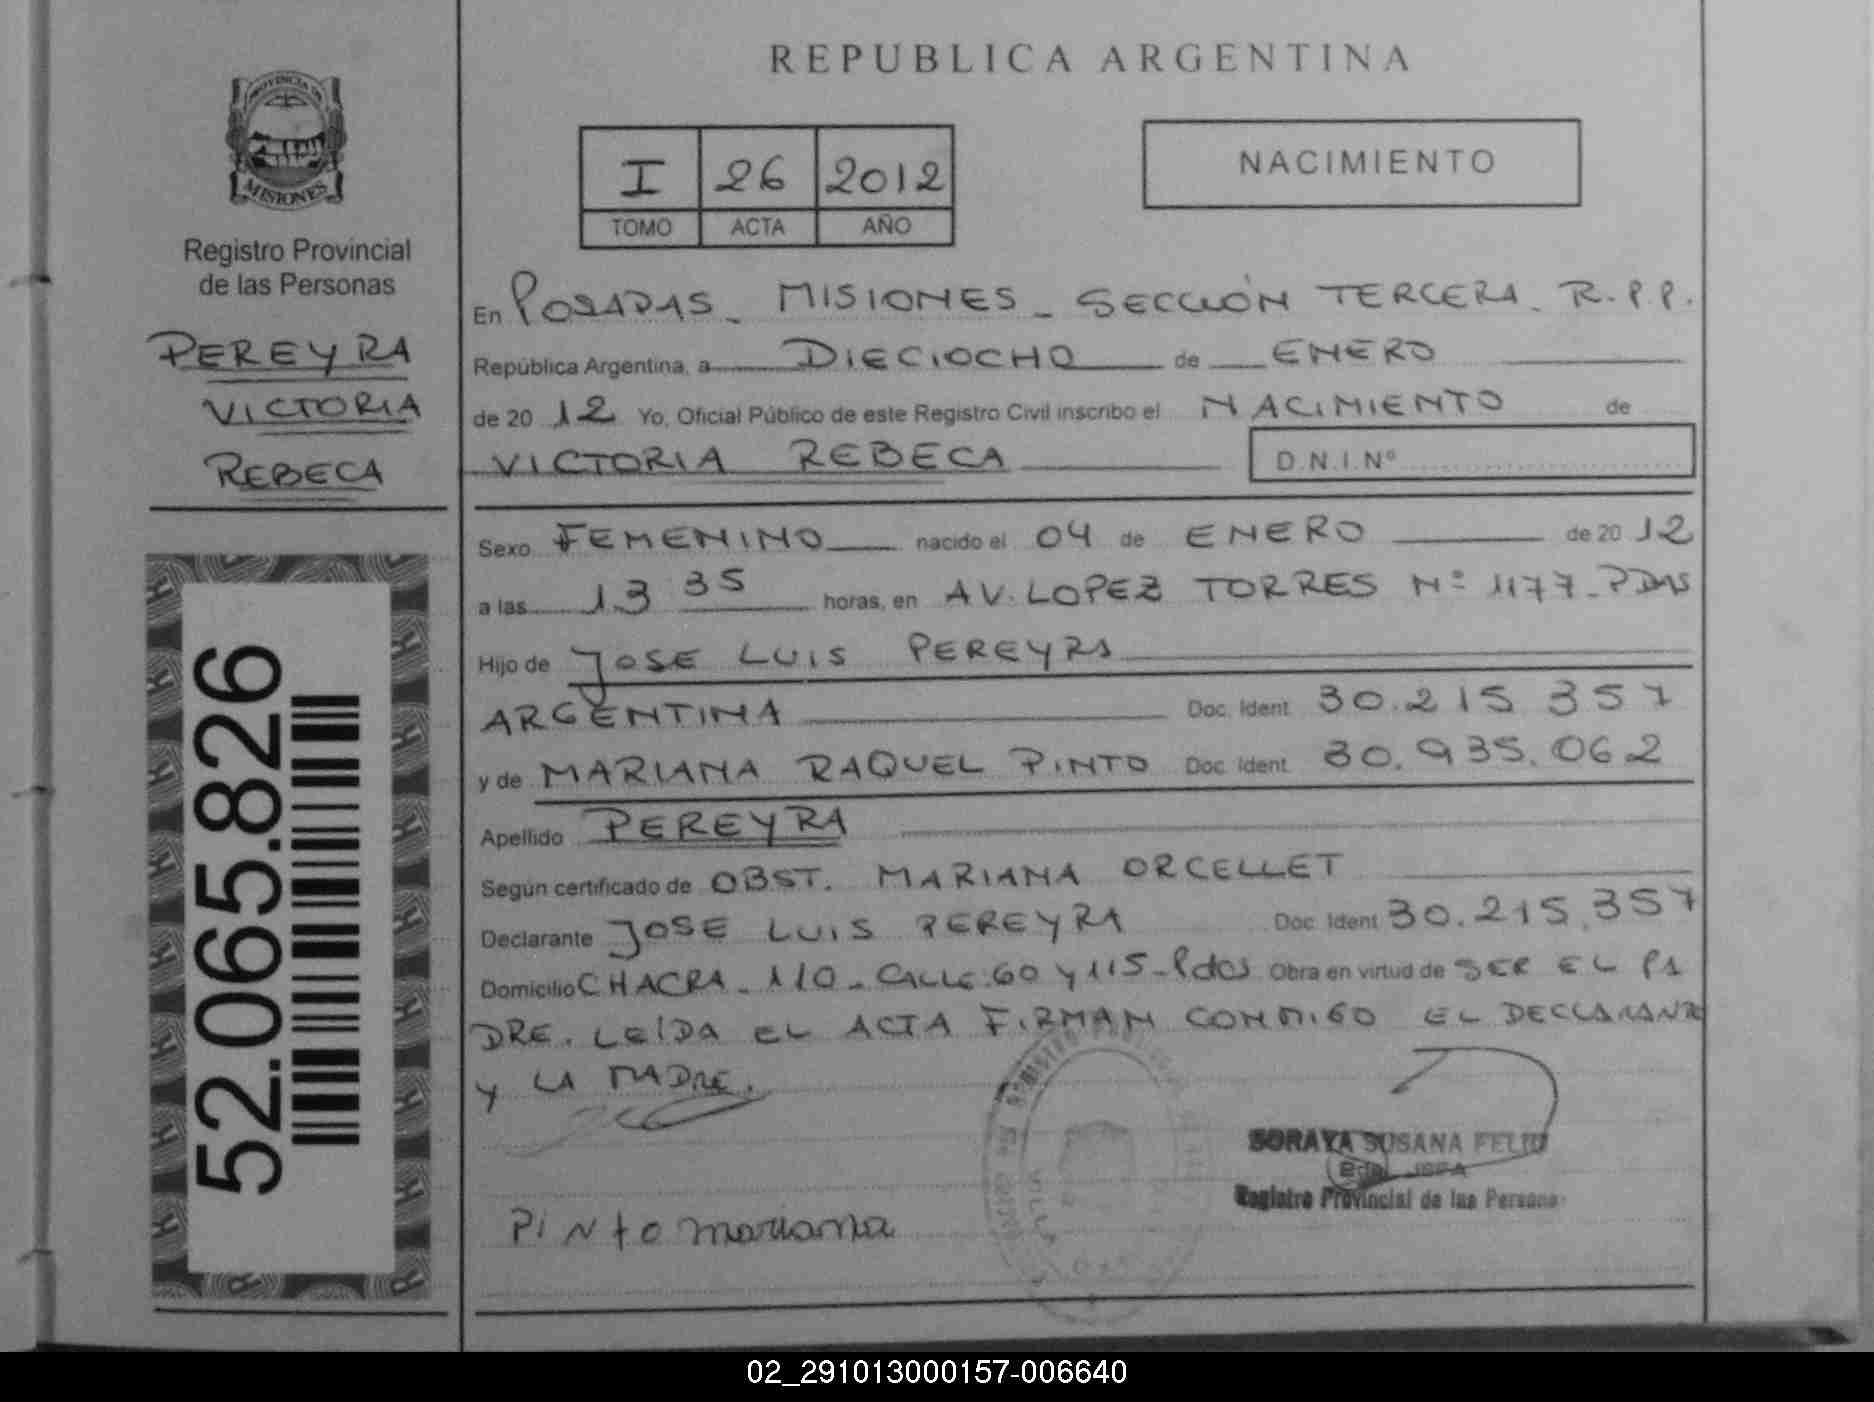 REPUBLICA ARGENTINA
PROVINCIA DE
MISIONES
Registro Provincial
de las Personas
PEREYRA
VICTORIA
REBECA
52.065.826
I 26 2012
TOMO ACTA AÑO
NACIMIENTO
En POSADAS_ MISIONES_ SECCIÓN TERCERA_ R.P.P.
República Argentina, a DIECIOCHO de ENERO
de 20 12 Yo, Oficial Público de este Registro Civil inscribo el NACIMIENTO de
VICTORIA REBECA D.N.I.Nº
Sexo FEMENINO nacido el 04 de ENERO de 20 12
a las 13 35 horas, en AV. LOPEZ TORRES Nº 1177_PDAS
Hijo de JOSE LUIS PEREYRA
ARGENTINA Doc. Ident 30.215.357
y de MARIANA RAQUEL PINTO Doc. Ident 30.935.062
Apellido PEREYRA
Según certificado de OBST. MARIANA ORCELLET
Declarante JOSE LUIS PEREYRA Doc. Ident 30.215.357
Domicilio CHACRA_110_CALLE 60 y 115_Pdas Obra en virtud de SER EL PA
DRE. LEIDA EL ACTA FIRMAN CONMIGO EL DECLARANTE
y LA MADRE.
SORAYA SUSANA FELIU
Registro Provincial de las Personas
PINto mariana
02_291013000157-006640